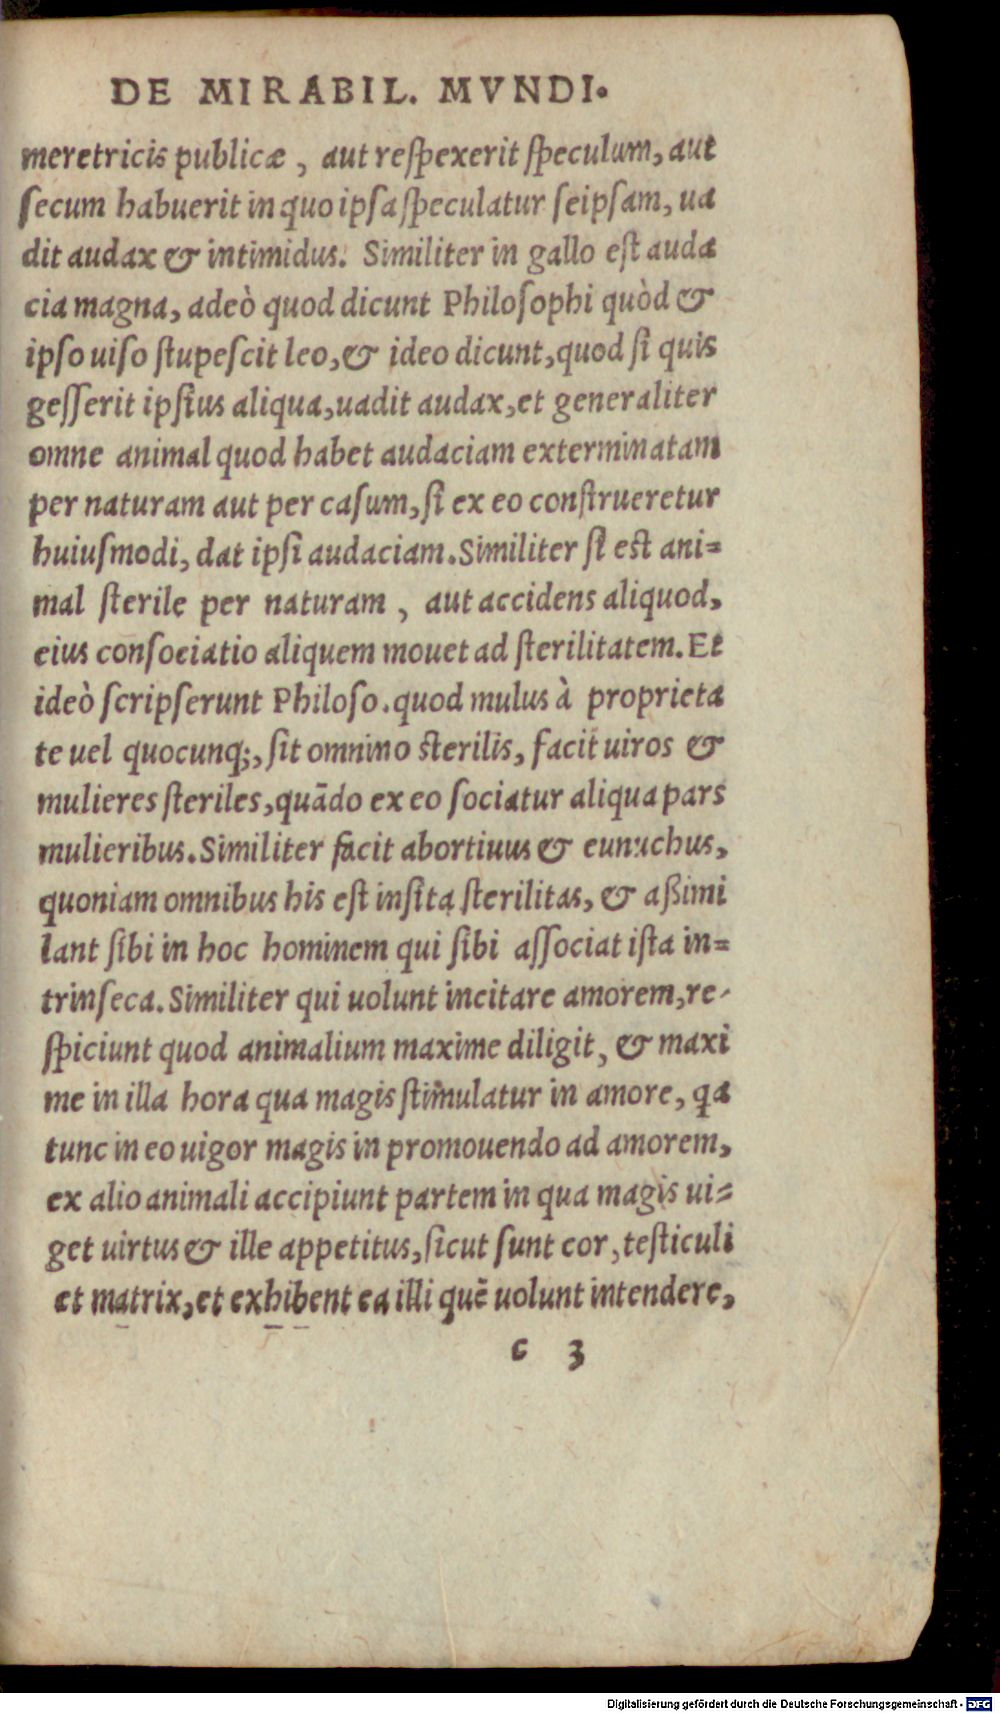 DE MIRABIL. MVNDI.
meretricis publicæ , aut reſpexerit ſpeculum, aut
ſecum habuerit in quo ipſa ſpeculatur ſeipſam, ua
dit audax & intimidus. Similiter in gallo eſt auda
cia magna, adeò quod dicunt Philoſophi quòd &
ipſo uiſo ſtupeſcit leo, & ideo dicunt, quod ſi quis
geſſerit ipſius aliqua, uadit audax, et generaliter
omne animal quod habet audaciam exterminatam
per naturam aut per caſum, ſi ex eo conſtrueretur
huiuſmodi, dat ipſi audaciam. Similiter ſi est ani=
mal ſterile per naturam , aut accidens aliquod,
eius conſociatio aliquem mouet ad ſterilitatem. Et
ideò ſcripſerunt Philoſo. quod mulus à proprieta
te uel quocunq;, ſit omnino sterilis, facit uiros &
mulieres ſteriles, quādo ex eo ſociatur aliqua pars
mulieribus. Similiter facit abortiuus & eunuchus,
quoniam omnibus his eſt inſita ſterilitas, & aßimi
lant ſibi in hoc hominem qui ſibi aſſociat iſta in=
trinſeca. Similiter qui uolunt incitare amorem, re-
ſpiciunt quod animalium maxime diligit, & maxi
me in illa hora qua magis ſtimulatur in amore, qa
tunc in eo uigor magis in promouendo ad amorem,
ex alio animali accipiunt partem in qua magis ui=
get uirtus & ille appetitus, ſicut ſunt cor, teſticuli
et matrix, et exhibent ea illi quē uolunt intendere,
c 3
Digitalisierung gefördert durch die Deutsche Forschungsgemeinschaft - DFG